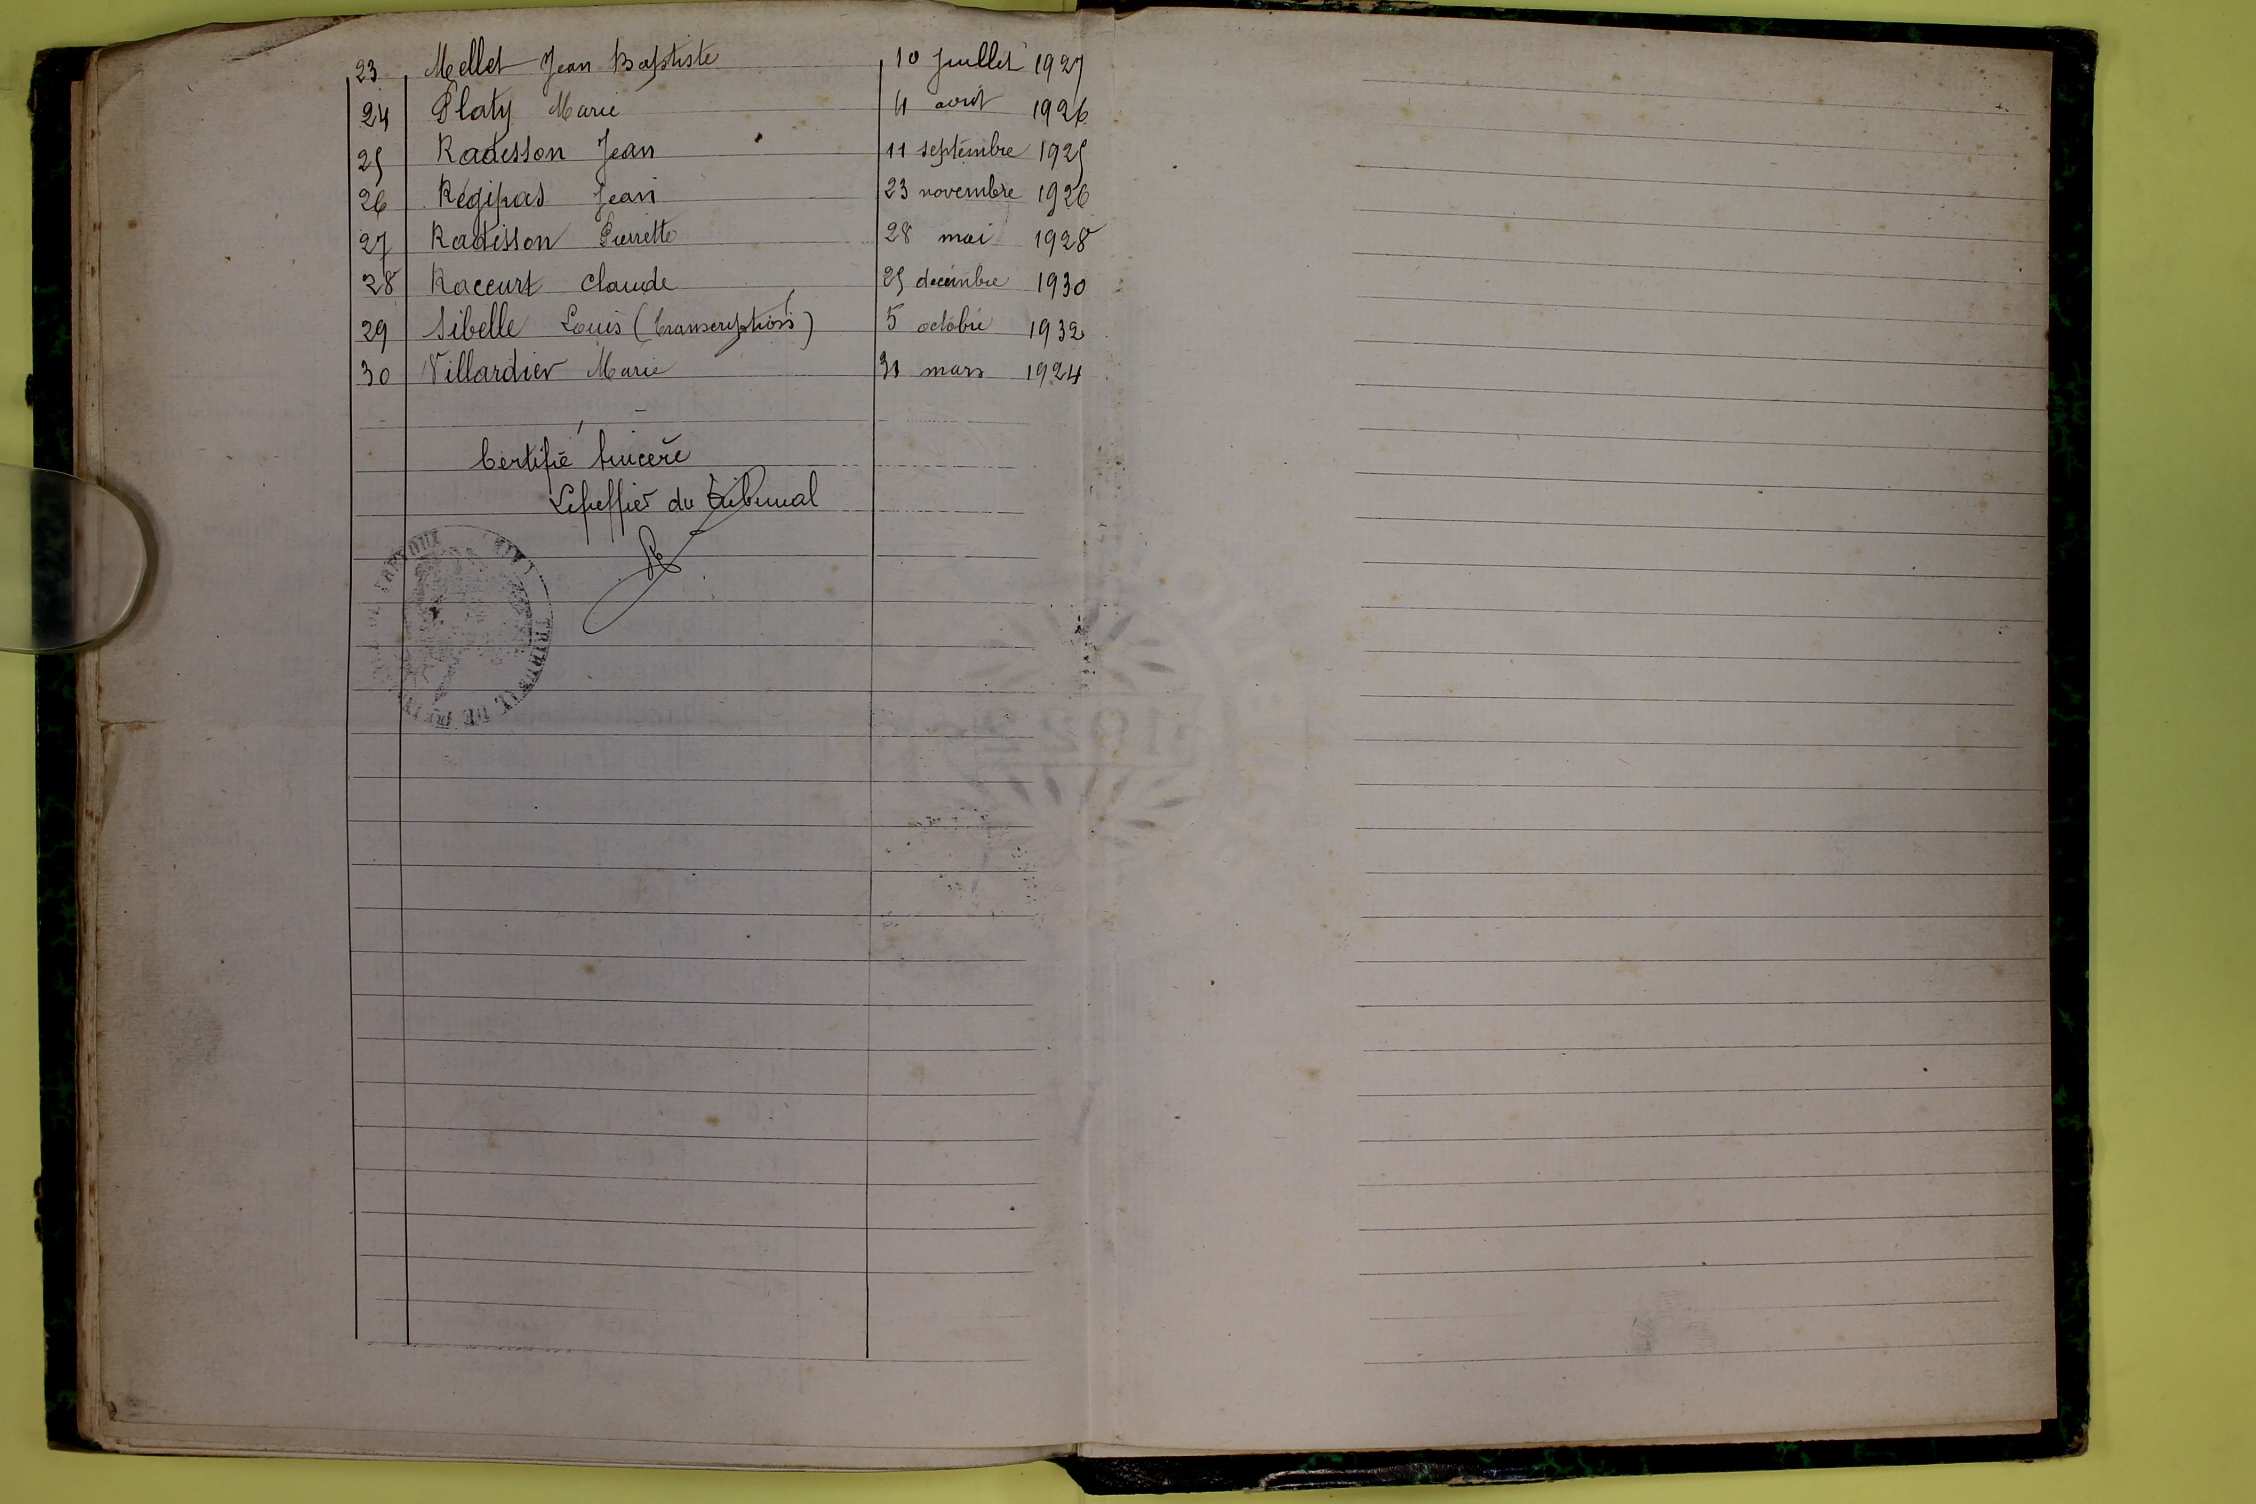 23 Mellet Jean Baptiste 10 Juillet 1927
24 Platy Marie 4 août 1926
25 Radisson Jean 11 septembre 1925
26 Régipas Jean 23 novembre 1926
27 Radisson Pierrette 28 mai 1928
28 Raccurt Claude 25 décembre 1930
29 Sibelle Louis (transcription) 5 octobre 1932
30 Villardier Marie 31 mars 1924
Certifié sincère
Le greffier du tribunal
TRIBUNAL DE TREVOUX
1922